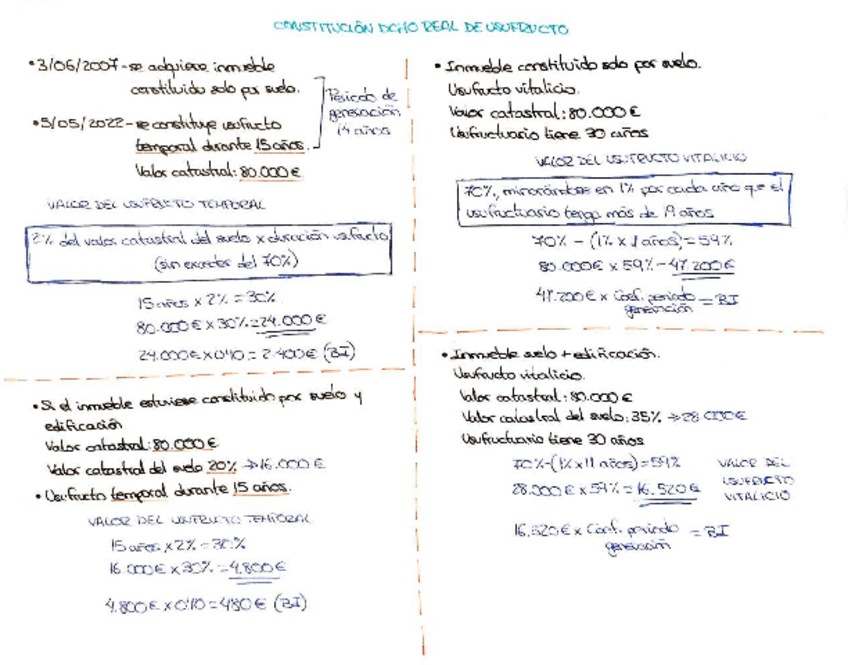 CONSTITUCIÓN DCHO REAL DE USUFRUCTO
• 3/06/2007 - se adquiere inmueble
constituido solo por suelo.
Periodo de
generación
14 años
• 5/05/2022 - se constituye usufructo
temporal durante 15 años.
Valor catastral: 80.000 €
VALOR DEL USUFRUCTO TEMPORAL
2% del valor catastral del suelo x duración usufructo
(sin exceder del 70%)
15 años x 2% = 30%
80.000 € x 30% = 24.000 €
24.000 € x 0'10 = 2.400 € (BI)
• Si el inmueble estuviese constituido por suelo y
edificación
Valor catastral: 80.000 €
Valor catastral del suelo 20% → 16.000 €
• Usufructo temporal durante 15 años.
VALOR DEL USUFRUCTO TEMPORAL
15 años x 2% = 30%
16.000 € x 30% = 4.800 €
4.800 € x 0'10 = 480 € (BI)
• Inmueble constituido solo por suelo.
Usufructo vitalicio.
Valor catastral: 80.000 €
Usufructuario tiene 30 años
VALOR DEL USUFRUCTO VITALICIO
70%, minorándose en 1% por cada año que el
usufructuario tenga más de 19 años
70% - (1% x 11 años) = 59%
80.000 € x 59% = 47.200 €
47.200 € x Coef. periodo = BI
generación
• Inmueble suelo + edificación.
Usufructo vitalicio.
Valor catastral: 80.000 €
Valor catastral del suelo: 35% → 28.000 €
Usufructuario tiene 30 años
70% - (1% x 11 años) = 59%
28.000 € x 59% = 16.520 €
VALOR DEL
USUFRUCTO
VITALICIO
16.520 € x Coef. periodo = BI
generación